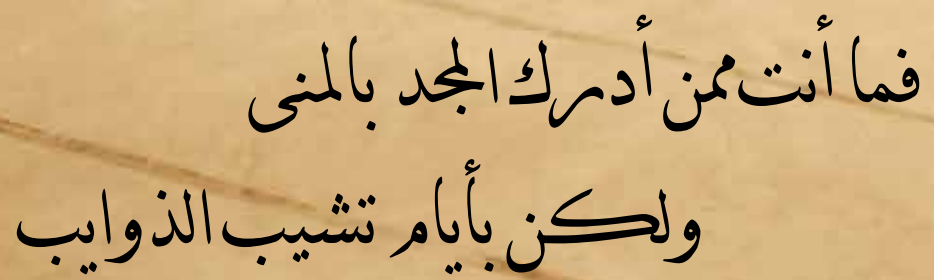 فما أنت ممن أدرك المجد بالمنى
ولكن بأيام تشيب الذوايب